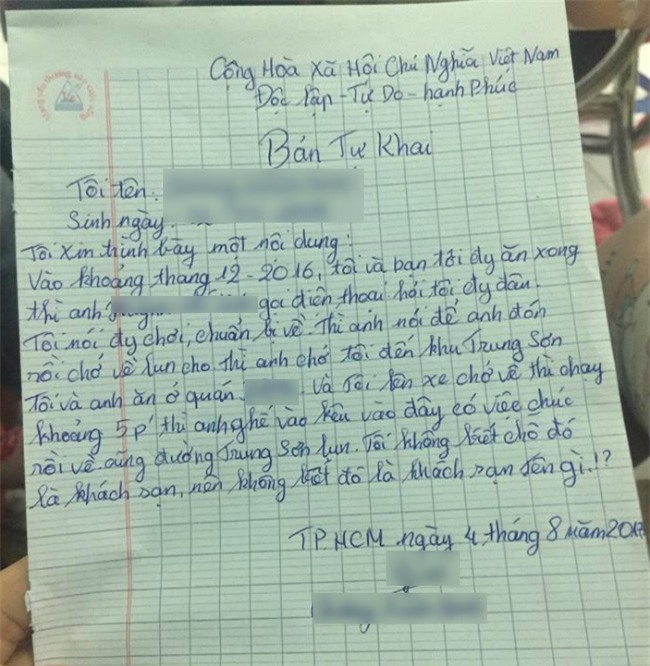 Cộng Hòa Xã Hội Chủ Nghĩa Việt Nam
Độc lập - Tự Do - hạnh Phúc
Bán Tự Khai
Tôi tên:
Sinh ngày:
Tôi xin trình bày một nội dung:
Vào khoảng tháng 12 - 2016, tôi và bạn tôi đy ăn xong
thì anh gọi điện thoại hỏi tôi đy dân.
Tôi nói đy chơi, chuẩn bị về. Thì anh nói để anh đón
rồi chớ về lun cho. thì anh chớ tôi đến khu Trung Sơn
Tôi và anh ăn ở quán và tôi lên xe chớ về thì chạy
khoảng 5p' thì anh ghé vào kêu vào đây có việc chúc
rồi về cũng đường Trung Sơn lun. Tôi không biết chỗ đó
là khách sạn, nên không biết đó là khách sạn tên gì.!?
TP.HCM ngày 4 tháng 8 năm 2017